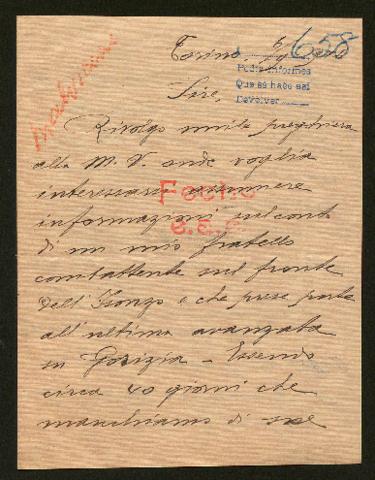 658
Torino,
Pedir informes
Que se hace así
Devolver
Sire,
Rivolgo umile preghiera
alla M. V. onde voglia
interessarsi assumere
informazioni sul conto
Fecho
di un mio fratello
combattente sul fronte
dell'Isonzo e che prese parte
all'ultima avanzata
su Gorizia – Essendo
circa 40 giorni che
manchiamo di sue